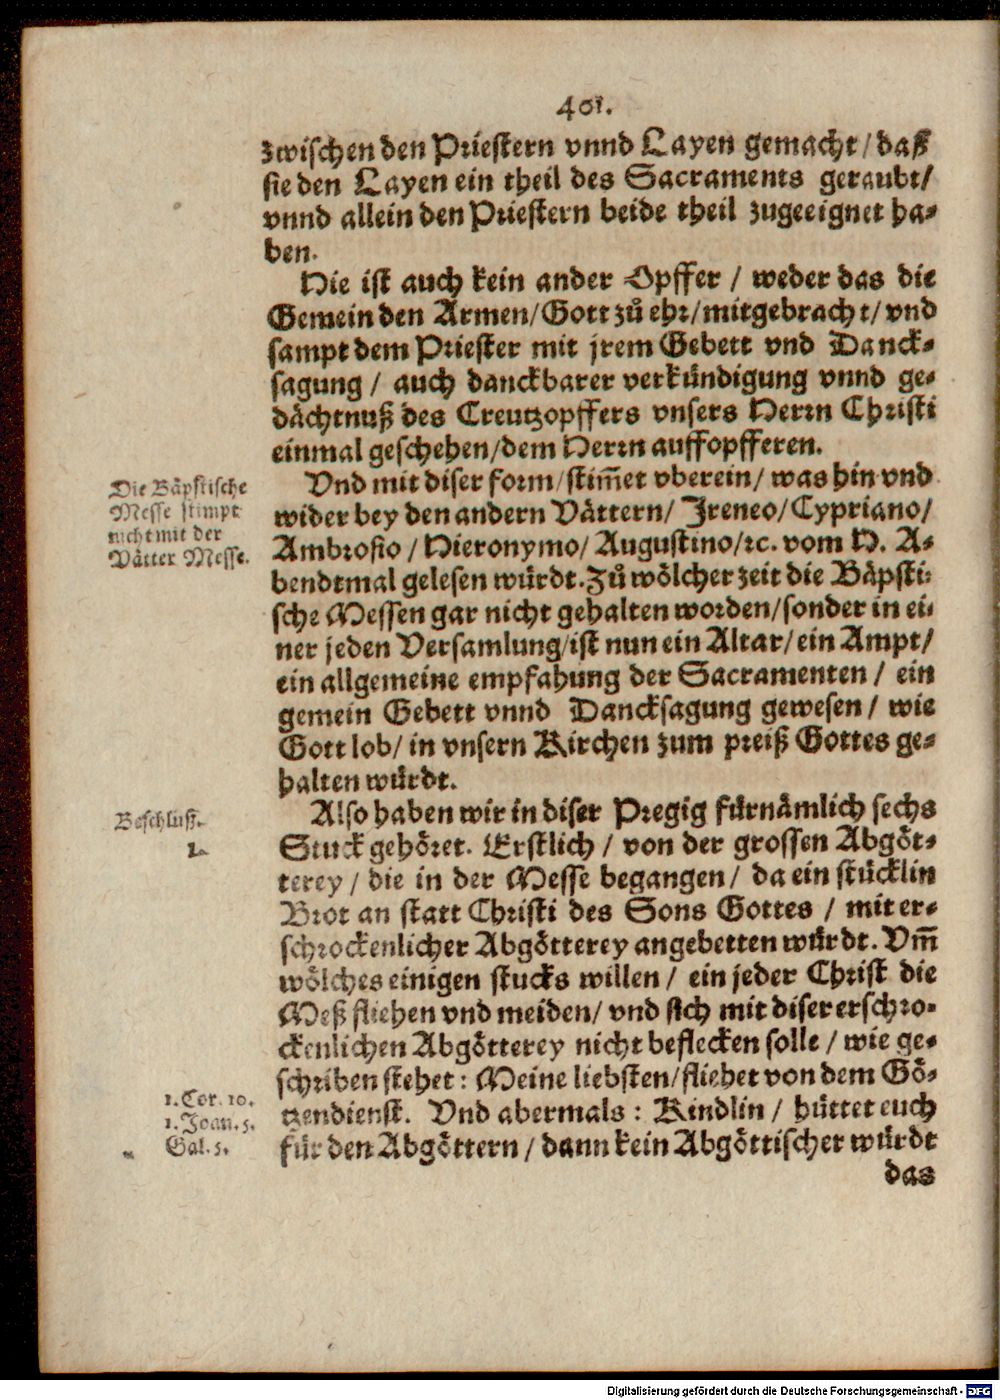 401.
zwischen den Priestern vnnd Layen gemacht/ daß
sie den Layen ein theil des Sacraments geraubt/
vnnd allein den Priestern beide theil zugeeignet ha-
ben.
Hie ist auch kein ander Opffer / weder das die
Gemein den Armen/ Gott zů ehr/ mitgebracht/ vnd
sampt dem Priester mit jrem Gebett vnd Danck-
sagung / auch danckbarer verkündigung vnnd ge-
dächtnuß des Creutzopffers vnsers Herrn Christi
einmal geschehen/ dem Herrn auffopfferen.
Die Bäpstische
Messe stimpt
nicht mit der
Vätter Messe.
Vnd mit diser form/ stim̃et vberein/ was hin vnd
wider bey den andern Vättern/ Jreneo/ Cypriano/
Ambrosio / Hieronymo/ Augustino/ ꝛc. vom H. A-
bendtmal gelesen würdt. Zů wölcher zeit die Bäpsti-
sche Messen gar nicht gehalten worden/ sonder in ei-
ner jeden Versamlung/ ist nun ein Altar/ ein Ampt/
ein allgemeine empfahung der Sacramenten / ein
gemein Gebett vnnd Dancksagung gewesen / wie
Gott lob/ in vnsern Kirchen zum preiß Gottes ge-
halten würdt.
Beschluß.
1.
Also haben wir in diser Pregig fürnämlich sechs
Stuck gehöret. Erstlich / von der grossen Abgöt-
terey / die in der Messe begangen / da ein stücklin
Brot an statt Christi des Sons Gottes / mit er-
schrockenlicher Abgötterey angebetten würdt. Vm̃
wölches einigen stucks willen / ein jeder Christ die
Meß fliehen vnd meiden/ vnd sich mit diser erschro-
ckenlichen Abgötterey nicht beflecken solle / wie ge-
schriben stehet: Meine liebsten/ fliehet von dem Gö-
tzendienst. Vnd abermals: Kindlin / hüttet euch
für den Abgöttern / dann kein Abgöttischer würdt
1. Cor. 10.
1. Joan. 5.
Gal. 5.
das
Digitalisierung gefördert durch die Deutsche Forschungsgemeinschaft - DFG